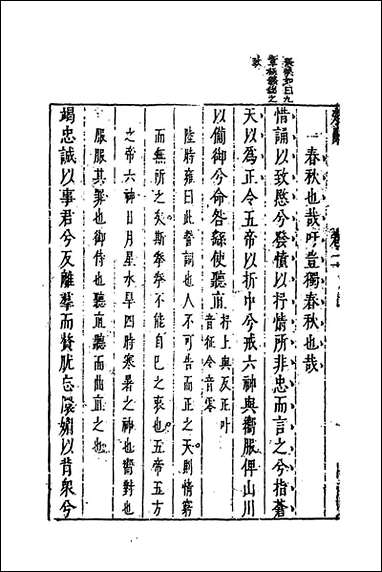 張煥如曰九
章極之
致
卷二
一春秋也哉吁豈獨春秋也哉
惜誦以致愍兮發憤以抒情所非忠而言之兮指蒼
天以為正令五帝以折中兮戒六神與嚮服俾山川
以備御兮命咎繇使聽直
抒上與反正叶
音征令音零
陸時雍曰此誓詞也人不可告而正之天則情窮
而無所之矣斯拳拳不能自已之衷也五帝五方
之帝六神日月星水旱四時寒暑之神也嚮對也
服服其罪也御侍也聽直聽而曲直之也
竭忠誠以事君兮反離羣而贅肬忘儇媚以背衆兮